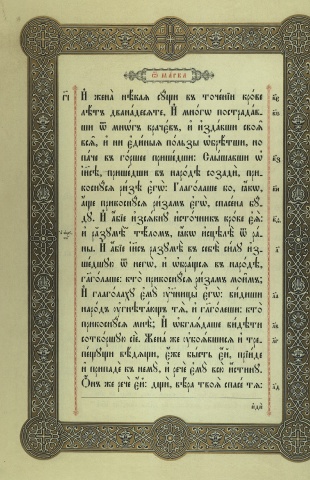 Ѿ МАРКА
И҆ жена̀ нѣ́каѧ сꙋ́щи въ точе́нїи кро́ве
лѣ́тъ двана́десѧте, И҆ мно́гѡ пострада́в-
ши ѿ мнѡ́гъ враче́въ, и҆ и҆зда́вши своѧ̑
всѧ̑, и҆ ни є҆ди́ныѧ по́льзы ѡ҆брѣ́тши, но
па́че въ го́ршее прише́дши: Слы́шавши ѡ҆
і҆и҃сѣ, прише́дши въ наро́дѣ созадѝ, при-
коснꙋ́сѧ ри́зѣ є҆гѡ̀: Глаго́лаше бо, ꙗ҆́кѡ,
а҆́ще прикоснꙋ́сѧ ри́замъ є҆гѡ̀, спасе́на бꙋ́-
дꙋ. И҆ а҆́бїе и҆зсѧ́кнꙋ и҆сто́чникъ кро́ве є҆ѧ̀:
и҆ разꙋмѣ̀ тѣ́ломъ, ꙗ҆́кѡ и҆сцѣлѣ̀ ѿ ра́-
ны. И҆ а҆́бїе і҆и҃съ разꙋмѣ̀ въ себѣ̀ си́лꙋ и҆з-
ше́дшꙋю ѿ негѡ̀, и҆ ѡ҆бра́щьсѧ въ наро́дѣ,
глаго́лаше: кто̀ прикоснꙋ́сѧ ри́замъ мои̑мъ;
И҆ глаго́лахꙋ є҆мꙋ̀ ᲂу҆ченицы̀ є҆гѡ̀: ви́диши
наро́дъ ᲂу҆гнѣта́ющъ тѧ̀, и҆ глаго́леши: кто̀
прикоснꙋ́сѧ мнѣ̀; И҆ ѡ҆глѧ́даше ви́дѣти
сотво́ршꙋю сїѐ. Жена́ же ᲂу҆боѧ́вшисѧ и҆ тре-
пе́щꙋщи, вѣ́дѧщи, є҆́же бы́сть є҆́й, прїи́де
и҆ припадѐ къ немꙋ̀, и҆ речѐ є҆мꙋ̀ всю̀ и҆́стинꙋ.
Ѻ҆́нъ же речѐ є҆́й: дщѝ, вѣ́ра твоѧ̀ спасе́ тѧ:
и҆дѝ